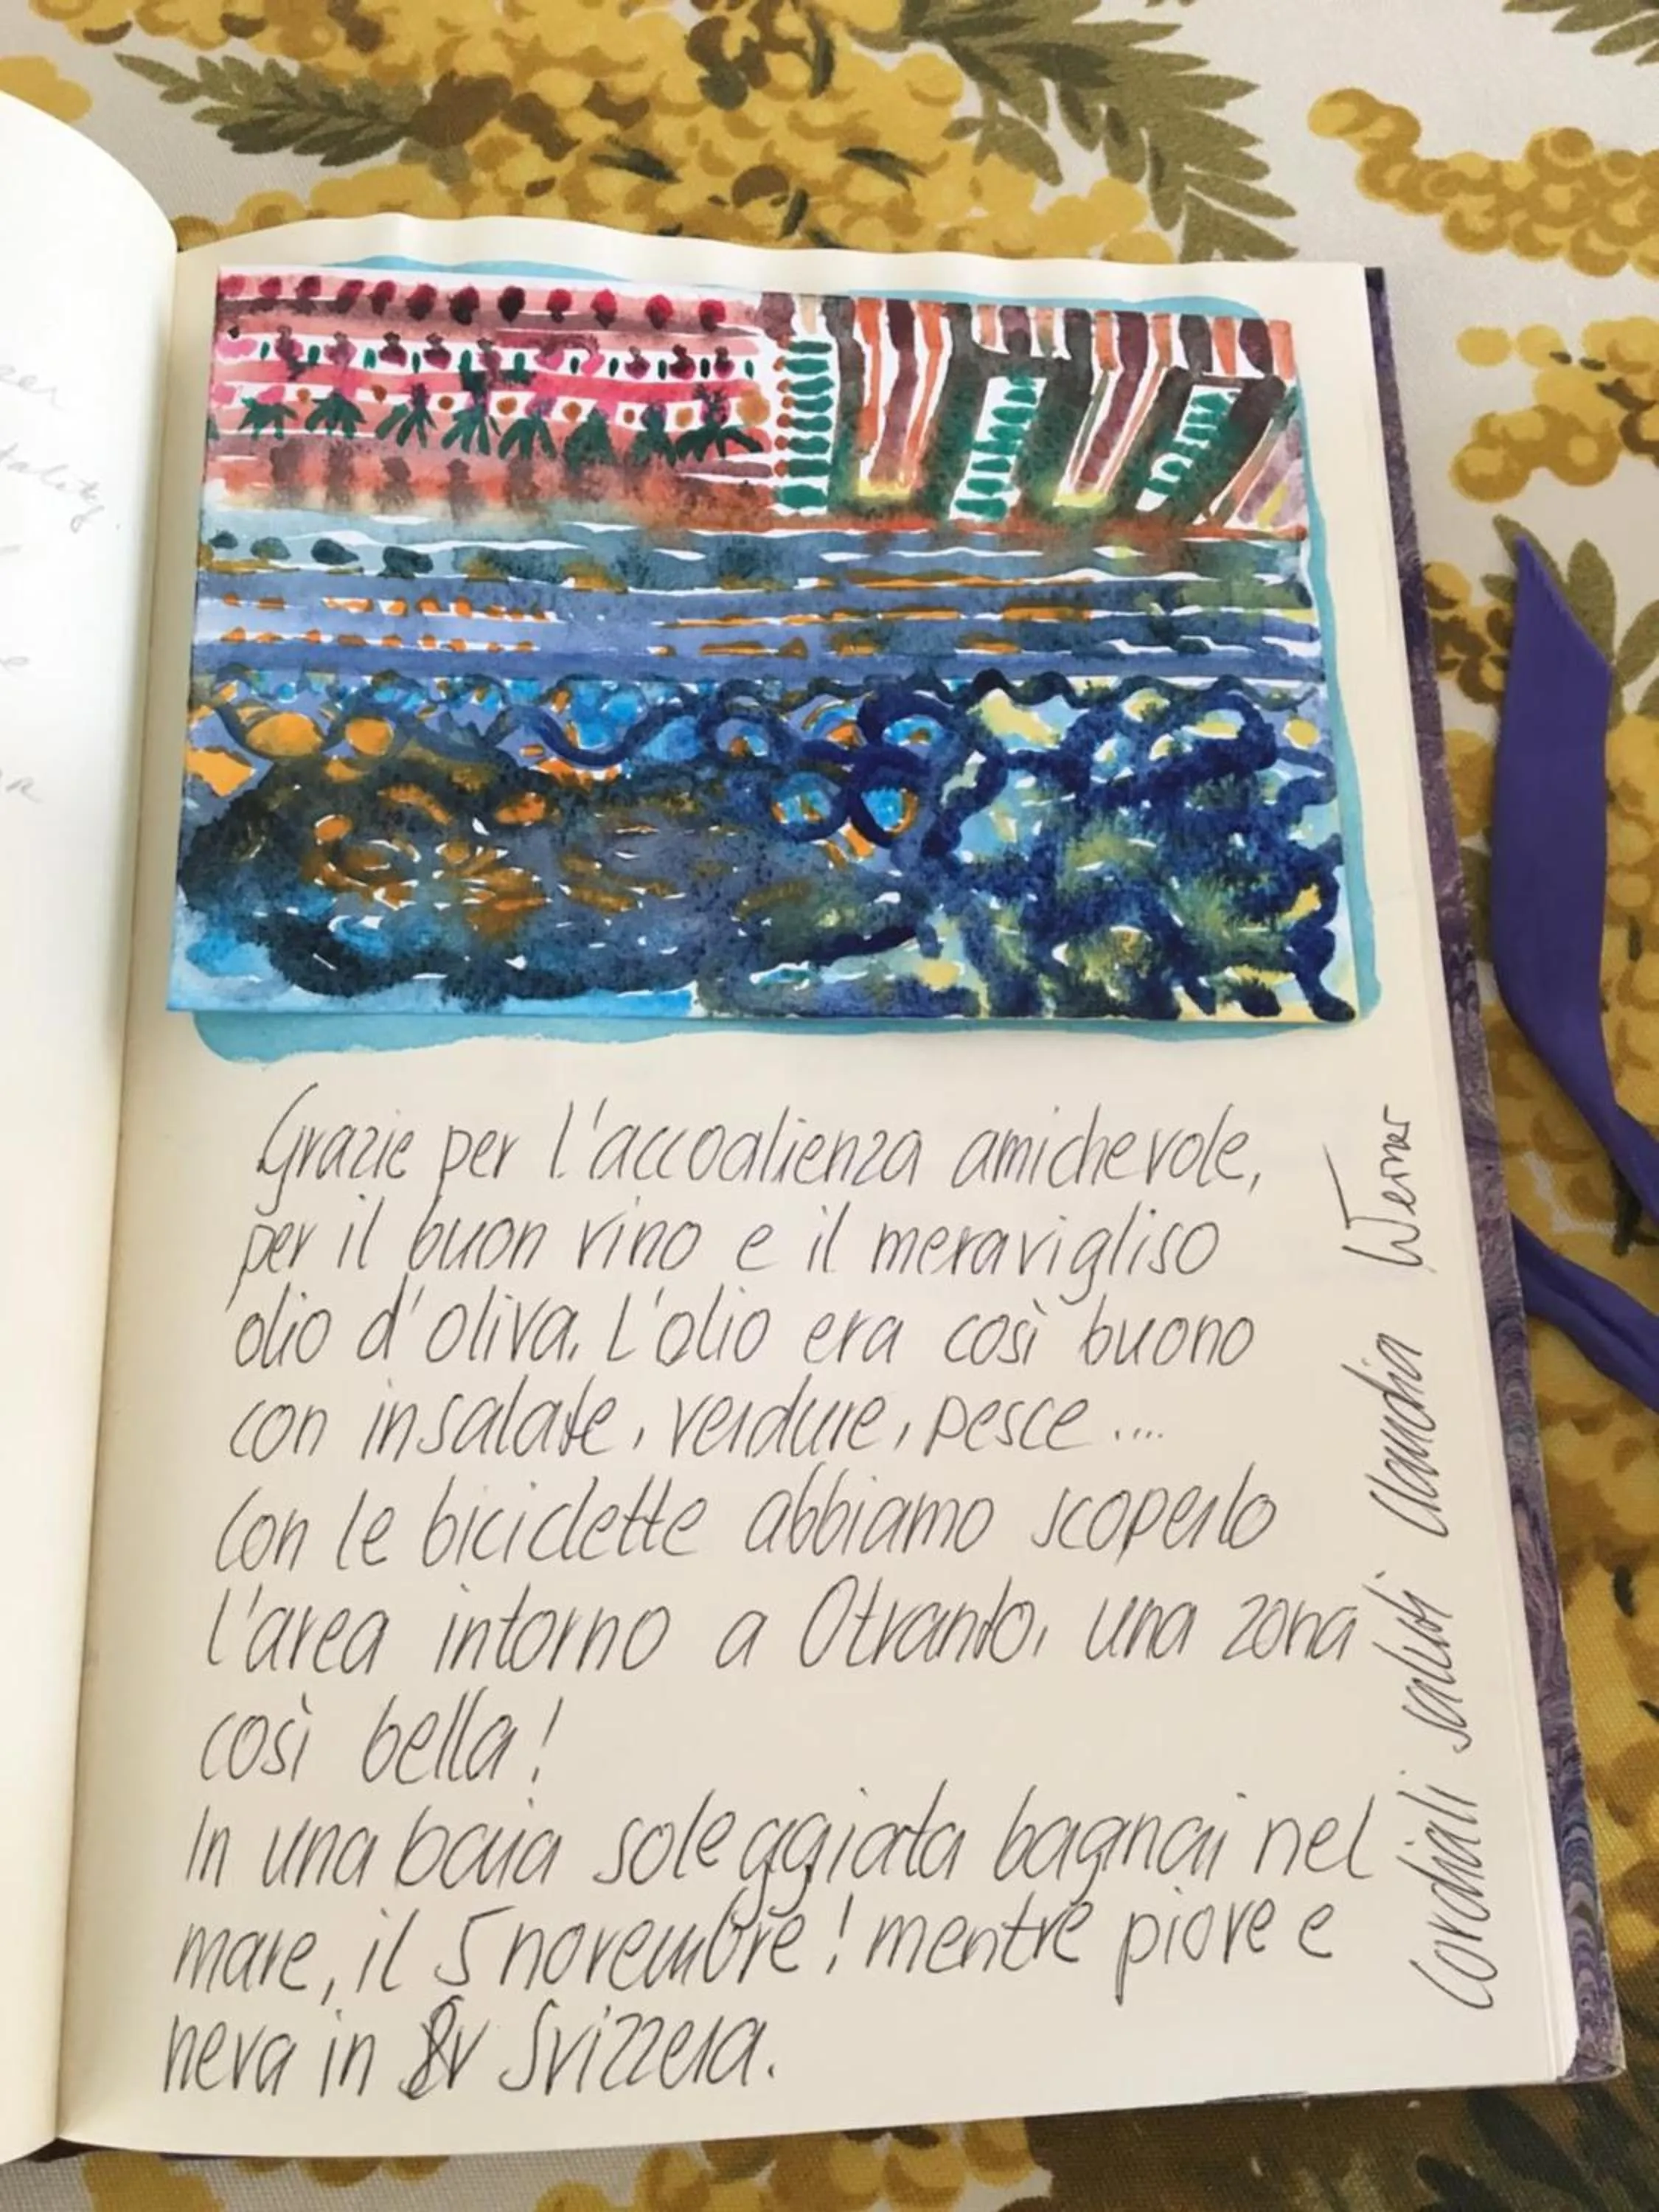 Grazie per l'accoalienza amichevole,
per il buon vino e il meravigliso
olio d'oliva. L'olio era così buono
con insalate, verdure, pesce ....
Con le biciclette abbiamo scoperto
l'area intorno a Otranto, una zona
così bella!
In una baia soleggiata bagnai nel
mare, il 5 novembre! mentre piove e
neva in Svizzera.
Cordiali saluti Claudia Werner